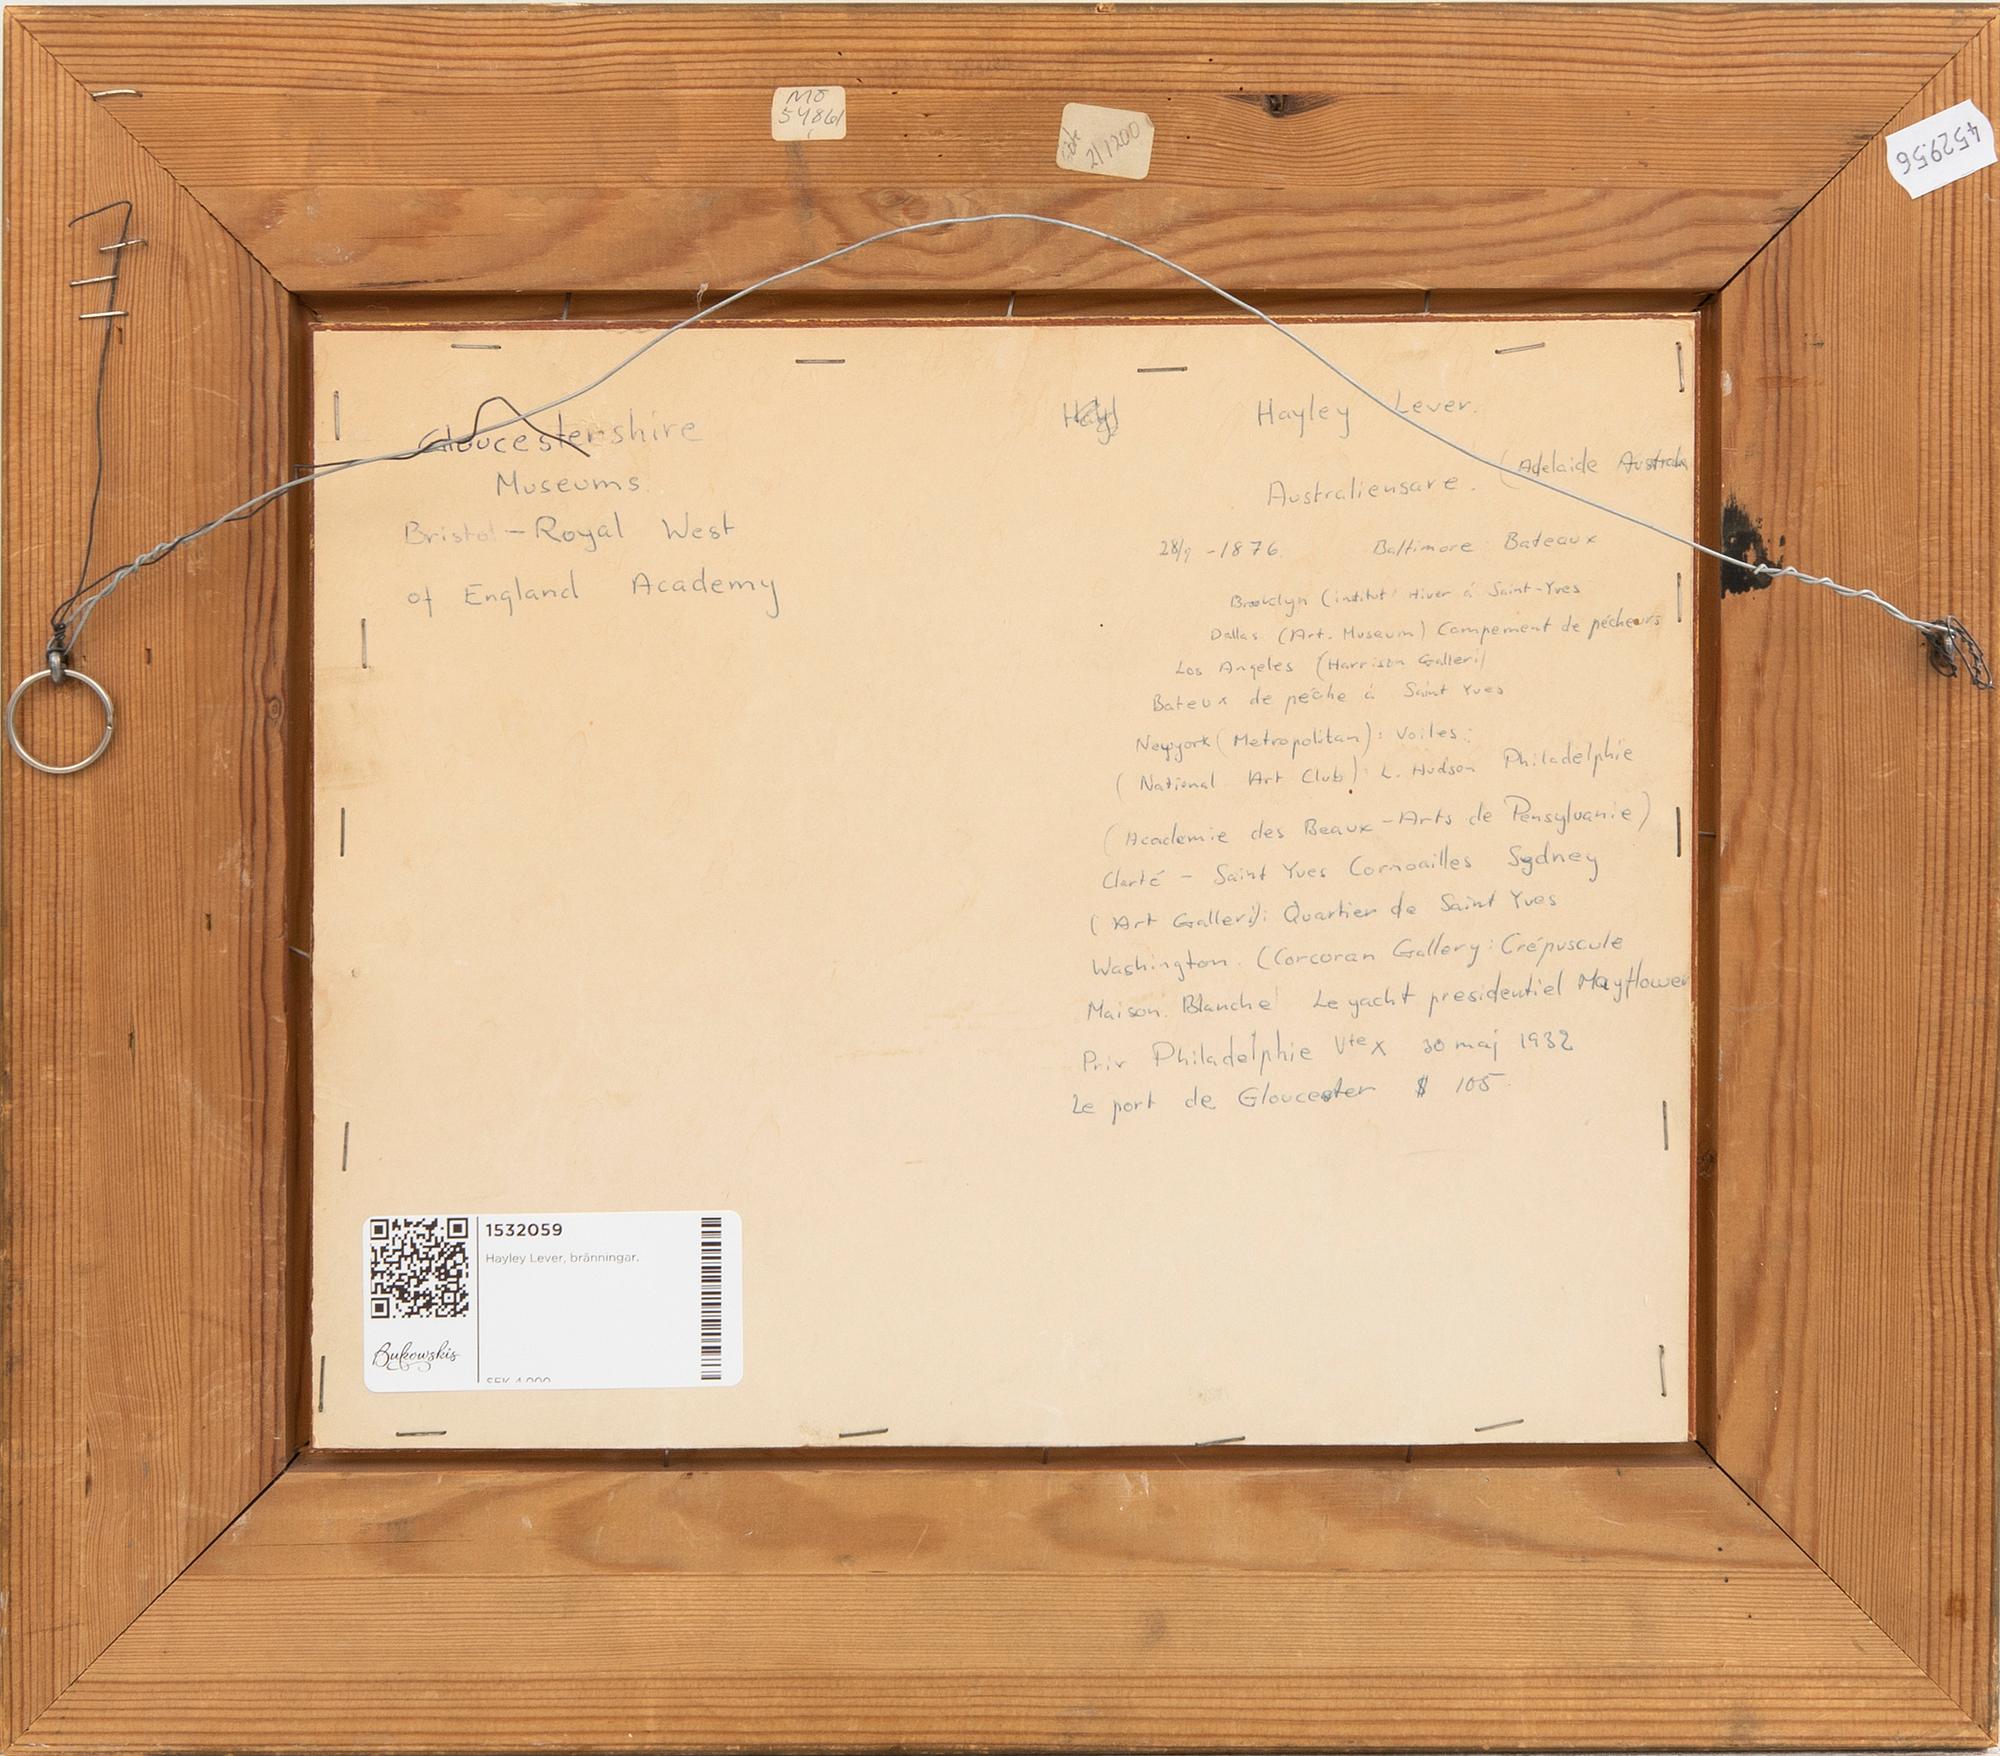 MO
54861
21200
452956
Gloucestershire
Museums.
Bristol - Royal West
of England Academy
Hayley Lever.
Australiensare. (Adelaide Australia
28/9 - 1876. Baltimore Bateaux
Brooklyn (institut Hiver á Saint-Yves
Dallas (Art. Museum) Campement de pécheurs
Los Angeles (Harrison Galleri)
Bateux de peche á Saint Yves
Newyork (Metropolitan): Voiles:
(National Art Club): L. Hudson Philadelphie
(Academie des Beaux-Arts de Pensylvanie)
Clarté - Saint Yves Cornoailles Sydney
(Art Galleri): Quartier de Saint Yves
Washington. (Corcoran Gallery: Crépuscule
Maison. Blanche Le yacht presidentiel Mayflower
Prix Philadelphie Vte X 30 maj 1932
Le port de Gloucester $ 105
1532059
Hayley Lever, bränningar.
Bukowskis
SEK 4 000